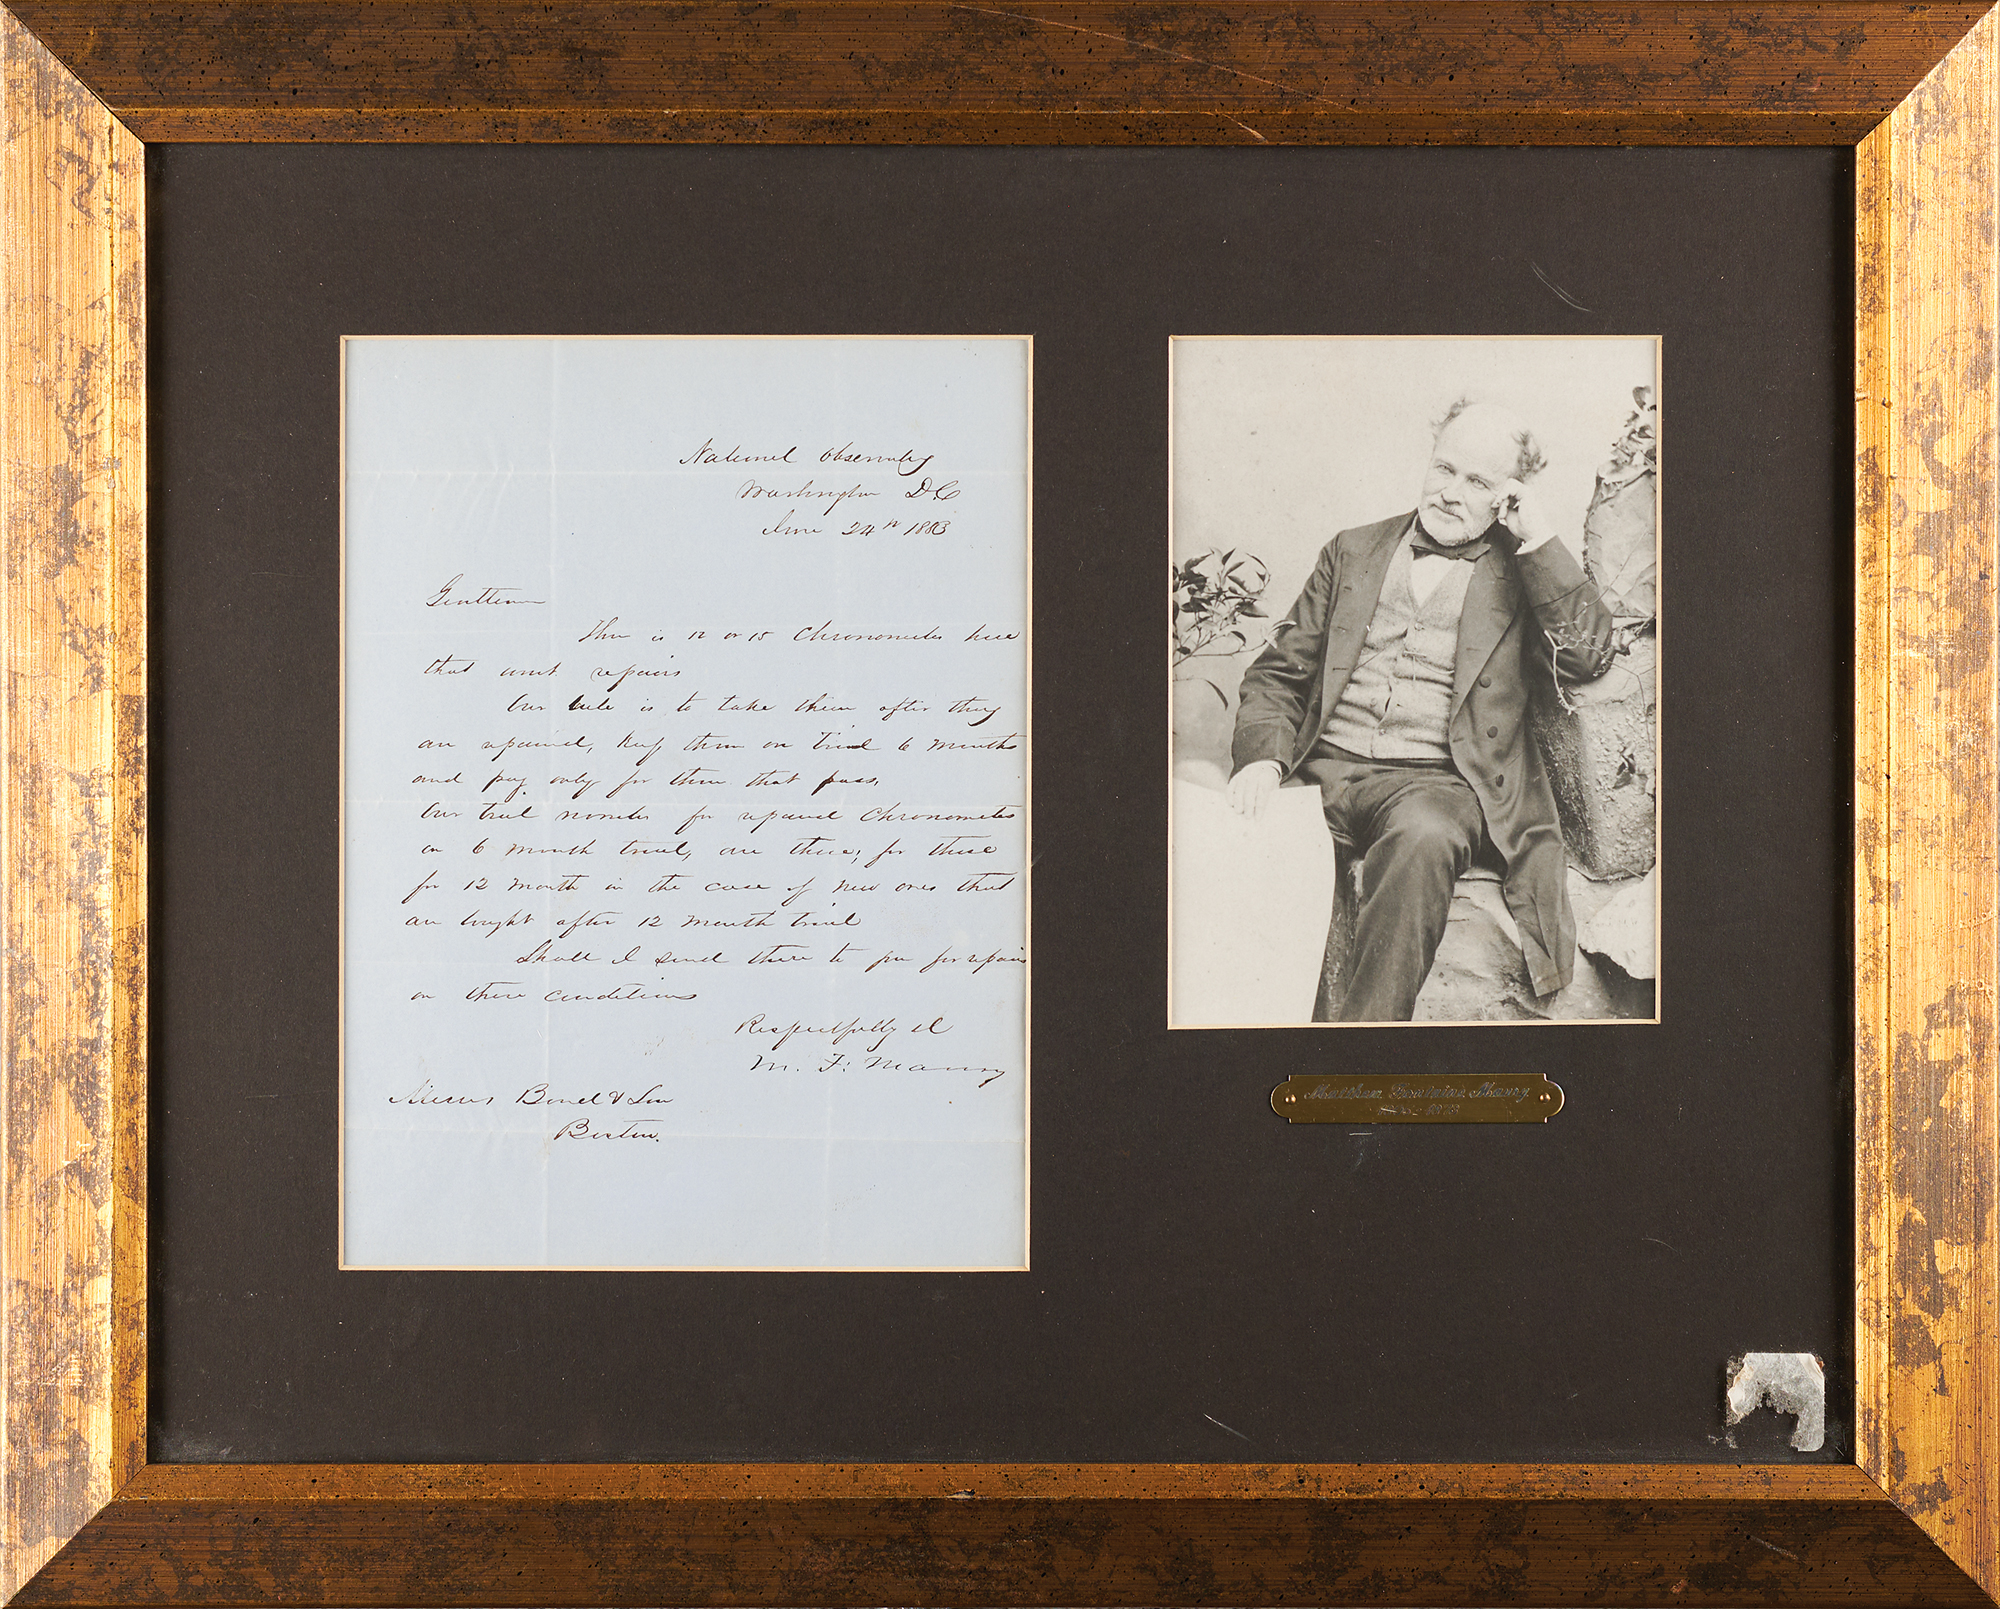 National Observatory
Washington D.C
June 24th 1853
Gentlemen
There is 12 or 15 Chronometers here
that want repairs
Our rule is to take them after they
are repaired, keep them on trial 6 months
and pay only for them that pass.
Our trial numbers for repaired Chronometers
on 6 month trial, are these; for these
for 12 month in the case of new ones that
are bought after 12 month trial
Shall I send these to you for repairs
on these conditions
Respectfully &c
M. F. Maury
Messrs Bond & Son
Boston.
Matthew Fontaine Maury